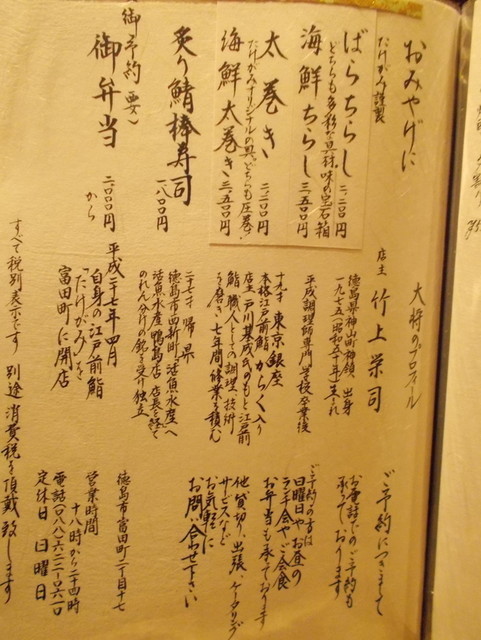 おみやげに
たけがみ謹製
ばらちらし 二、二〇〇円
どちらも多彩な具材、味の宝石箱
海鮮ちらし 三、五〇〇円
太巻き 二、二〇〇円
たけがみオリジナルの具。どちらも圧巻!
海鮮太巻き 三、五〇〇円
炙り鯖棒寿司 一、八〇〇円
御予約(要)
御弁当 二、〇〇〇円から
大将のプロフィール
店主 竹上栄司
徳島県神山町神領 出身
一九七五(昭和五十年)生まれ
平成調理師専門学校卒業後
十九才 東京銀座
本格江戸前鮨 からく入り
店主 戸川基成氏のもと江戸前
鮨 職人としての調理、技術
を磨き、七年間修業を積んだ
二十七才 帰県
徳島市四新町 活魚水産へ
活魚水産 鴨島店 店長を経て
のれん分けの銘を受け独立
平成二十七年四月
自身の江戸前鮨
「たけがみ」を
富田町に開店
ご予約につきまして
お電話でのご予約も
承っております
ご予約の方は
日曜日やお昼の
ランチ会やご会食
お弁当も承っております
他 貸切り、出張、ケータリング
サービスなど
お気軽に
お問い合わせ下さい
徳島市富田町二丁目十七
営業時間
十八時から二十四時
電話(〇八八)六二二-〇六一〇
定休日 日曜日
すべて税別表示です 別途消費税を頂戴致します